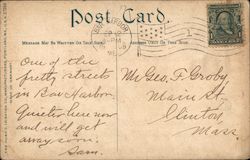 Post Card.
BAR HARBOR
MESSAGE MAY BE WRITTEN ON THIS SIDE.
ADDRESS ONLY ON THIS SIDE.
PM
One of the
pretty streets
in Bar Harbor
Quieter here now
and will get
away soon.
Sam.
Mr Geo. F. Groby
Main St.
Clinton,
Mass